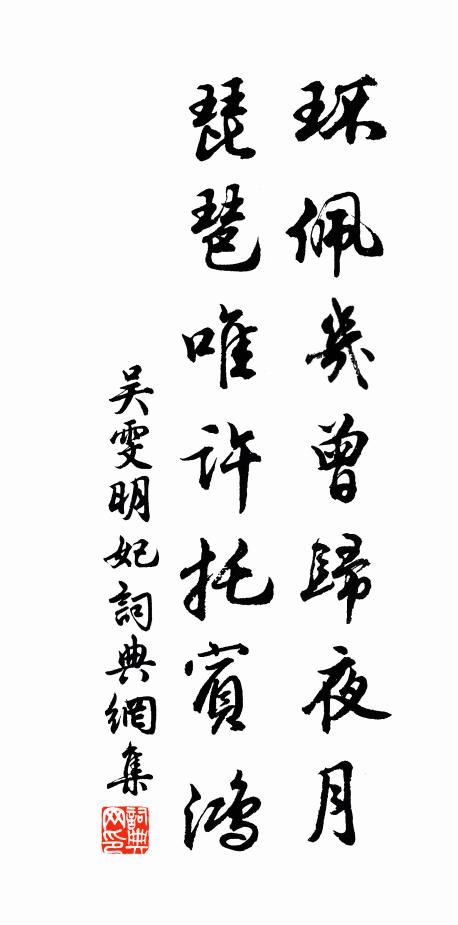 环佩幾曾歸夜月
琵琶唯許托賓鴻
吴雯明妃詞典網集
詞典网印